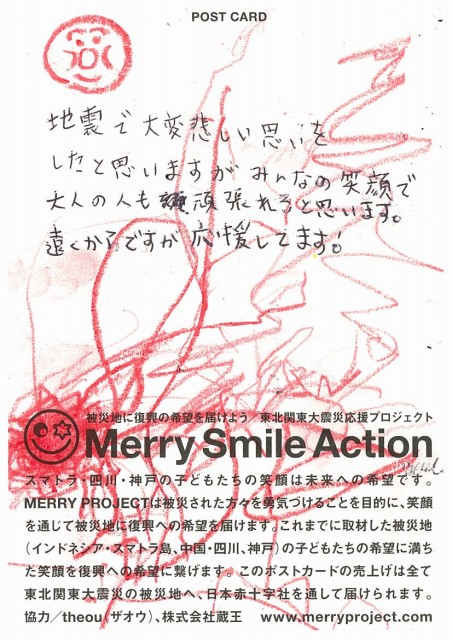 POST CARD
地震で大変悲しい思いを
したと思いますが みんなの笑顔で
大人の人も頑張れると思います。
遠くからですが 応援してます!
被災地に復興の希望を届けよう/東北関東大震災応援プロジェクト
Merry Smile Action
スマトラ・四川・神戸の子どもたちの笑顔は未来への希望です。
MERRY PROJECTは被災された方々を勇気づけることを目的に、笑顔
を通じて被災地に復興への希望を届けます。これまでに取材した被災地
(インドネシア・スマトラ島、中国・四川、神戸)の子どもたちの希望に満ち
た笑顔を復興への希望に繋げます。このポストカードの売上げは全て
東北関東大震災の被災地へ、日本赤十字社を通して届けられます。
協力/theou(ザオウ)、株式会社蔵王 www.merryproject.com